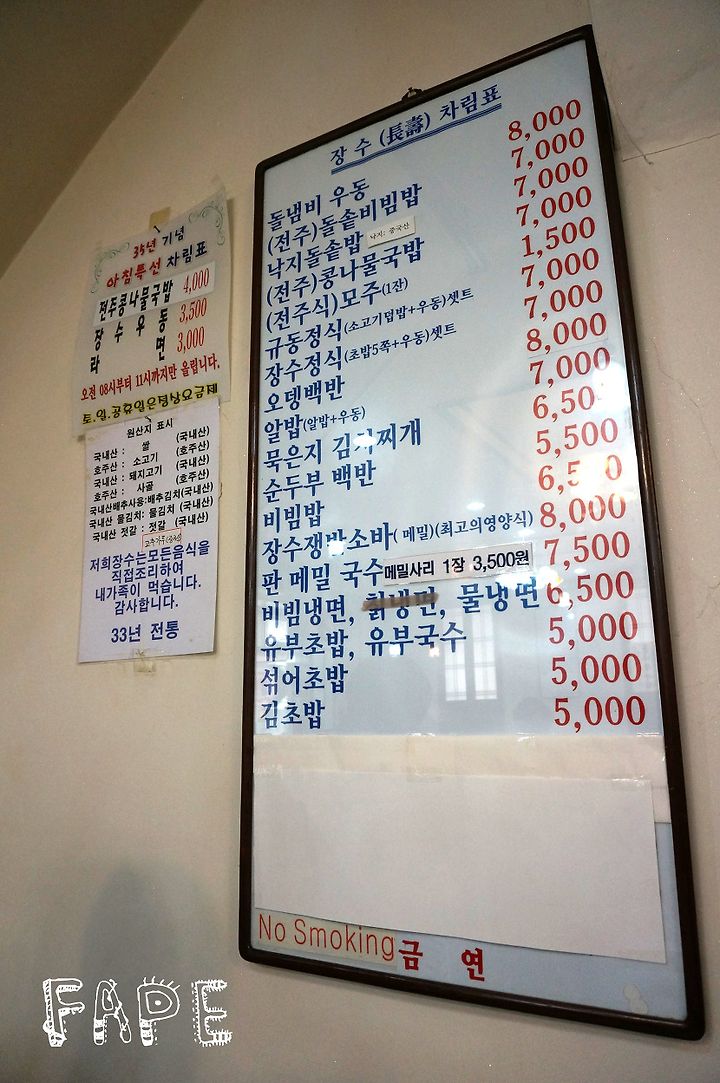 35년 기념
아침특선 차림표
전주콩나물국밥 4,000
장수우동 3,500
라면 3,000
오전 08시부터 11시까지만 올립니다.
토.일.공휴일은정상요금제
원산지 표시
국내산 : 쌀 (국내산)
호주산 : 소고기 (호주산)
국내산 : 돼지고기 (국내산)
호주산 : 사골 (호주산)
국내산배추사용:배추김치(국내산)
국내산 물김치: 물김치 (국내산)
국내산 젓갈 : 젓갈 (국내산)
저희장수는모든음식을
직접조리하여
내가족이 먹습니다.
감사합니다.
33년 전통
장 수 (長壽) 차림표
돌냄비 우동 8,000
(전주)돌솥비빔밥 7,000
낙지돌솥밥 낙지: 중국산 7,000
(전주)콩나물국밥 7,000
(전주식)모주(1잔) 1,500
규동정식(소고기덮밥+우동)셋트 7,000
장수정식(초밥5쪽+우동)셋트 7,000
오뎅백반 8,000
알밥(알밥+우동) 7,000
묵은지 김치찌개 6,500
순두부 백반 5,500
비빔밥 6,500
장수쟁반소바( 메밀)(최고의영양식) 8,000
판 메밀 국수 메밀사리 1장 3,500원 7,500
비빔냉면, 칡냉면, 물냉면 6,500
유부초밥, 유부국수 5,000
섞어초밥 5,000
김초밥 5,000
No Smoking 금 연
FAPE